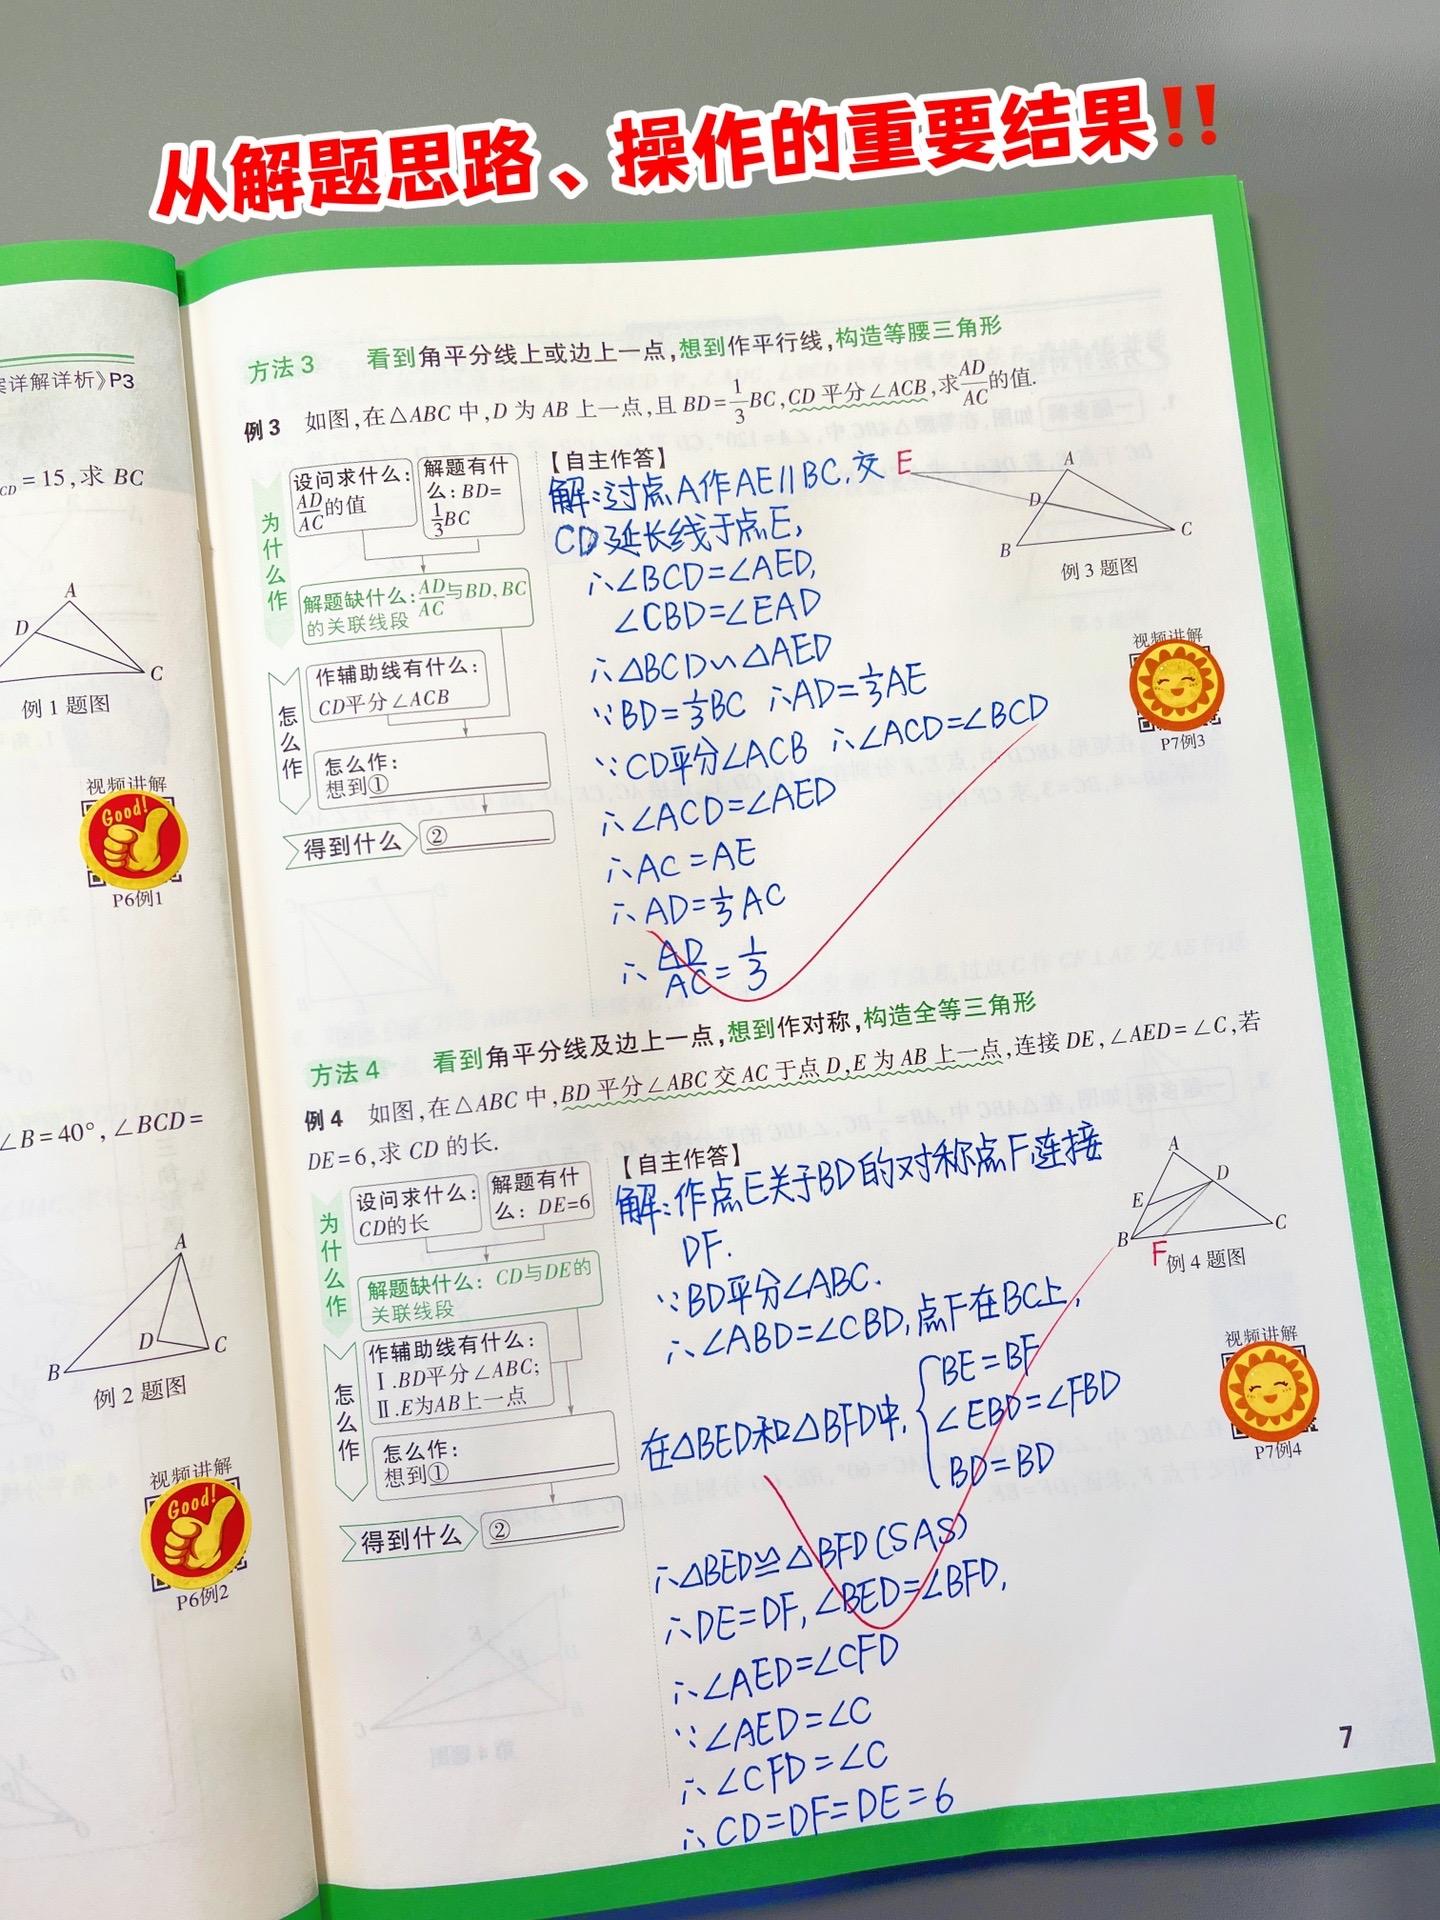 从解题思路、操作的重要结果!!
案详解详析》P3
=15,求 BC
A
D
C
例 1 题图
视频讲解
Good!
P6例1
∠B=40°,∠BCD=
A
D
B
C
例 2 题图
视频讲解
Good!
P6例2
方法 3 看到角平分线上或边上一点,想到作平行线,构造等腰三角形
例 3 如图,在△ABC 中,D 为 AB 上一点,且 BD=1/3BC,CD 平分∠ACB,求AD/AC的值.
为什么作
设问求什么:
AD/AC的值
解题有什
么:BD=
1/3BC
解题缺什么:AD/AC与BD,BC
的关联线段
怎么作
作辅助线有什么:
CD平分∠ACB
怎么作:
想到①
得到什么
②
【自主作答】
解:过点A作AE∥BC,交
CD延长线于点E,
∴∠BCD=∠AED,
∠CBD=∠EAD
∴△BCD∽△AED
∵BD=1/3BC ∴AD=1/3AE
∵CD平分∠ACB ∴∠ACD=∠BCD
∴∠ACD=∠AED
∴AC=AE
∴AD=1/3AC
∴AD/AC=1/3
E
A
D
B
C
例 3 题图
视频讲解
P7例3
方法 4 看到角平分线及边上一点,想到作对称,构造全等三角形
例 4 如图,在△ABC 中,BD 平分∠ABC 交 AC 于点 D,E 为 AB 上一点,连接 DE,∠AED=∠C,若
DE=6,求 CD 的长.
为什么作
设问求什么:
CD的长
解题有什
么:DE=6
解题缺什么:CD与DE的
关联线段
怎么作
作辅助线有什么:
Ⅰ.BD平分∠ABC;
Ⅱ.E为AB上一点
怎么作:
想到①
得到什么
②
【自主作答】
解:作点E关于BD的对称点F,连接
DF.
∵BD平分∠ABC.
∴∠ABD=∠CBD,点F在BC上,
在△BED和△BFD中,
BE=BF
∠EBD=∠FBD
BD=BD
∴△BED≌△BFD(SAS)
∴DE=DF,∠BED=∠BFD,
∴∠AED=∠CFD
∵∠AED=∠C
∴∠CFD=∠C
∴CD=DF=DE=6
A
D
E
B
F
C
例 4 题图
视频讲解
P7例4
7